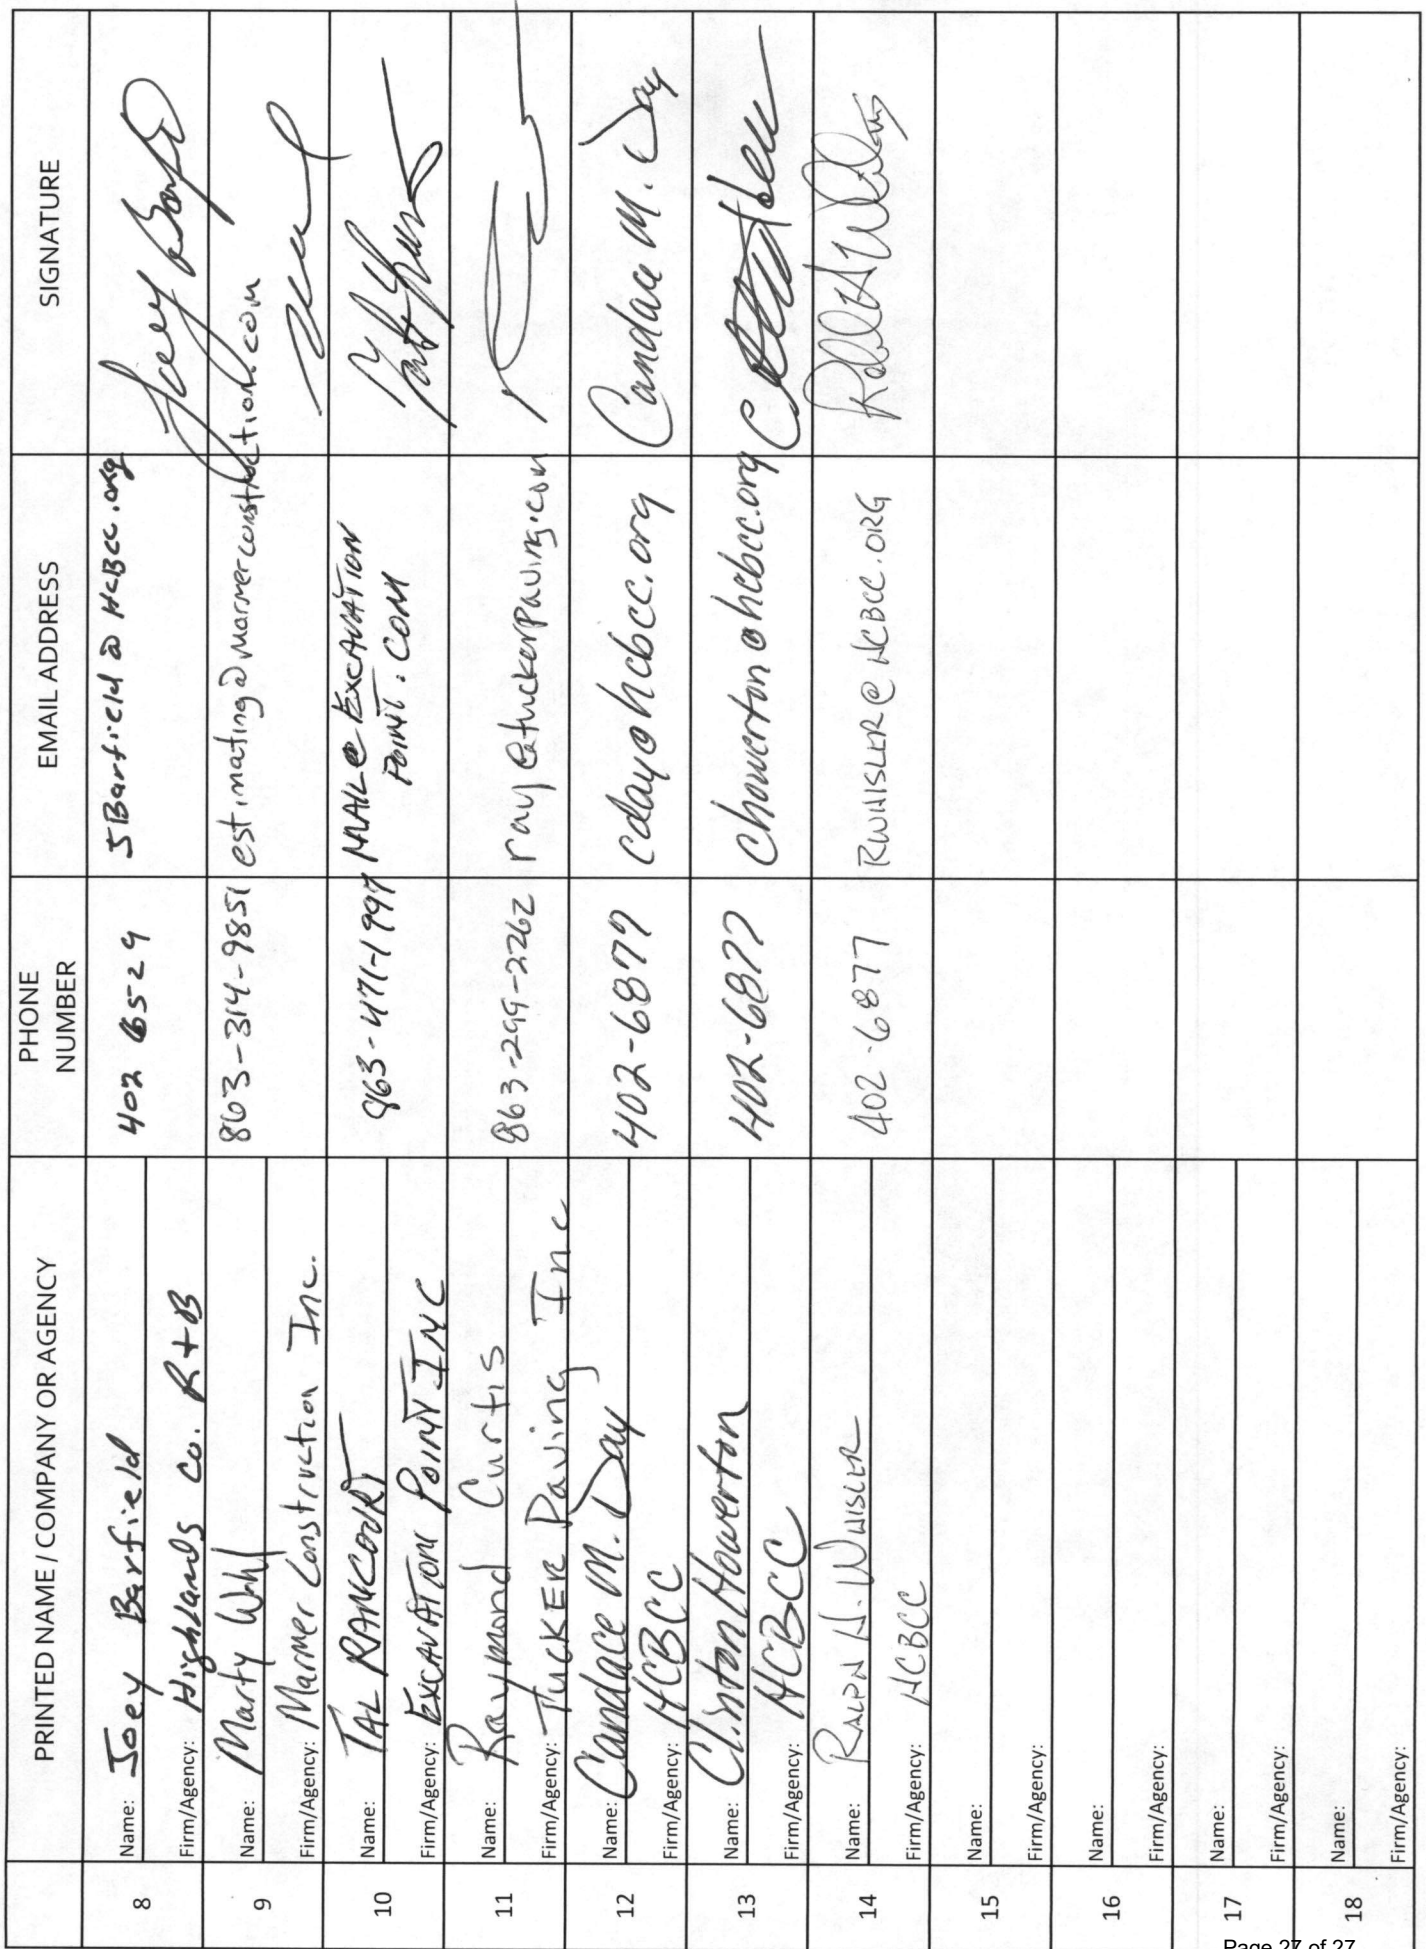 PRINTED NAME / COMPANY OR AGENCY
PHONE
NUMBER
EMAIL ADDRESS
SIGNATURE
8
Name: Joey Barfield
Firm/Agency: Highlands Co. R+B
402 6529
JBarfield@HCBCC.org
Joey
9
Name: Marty
Firm/Agency: Marmer Construction Inc.
863-314-9851
estimating@marmerconstruction.com
10
Name: TAL RANCOURT
Firm/Agency: EXCAVATION POINT INC
863-471-1997
MAIL@EXCAVATION
POINT.COM
11
Name: Raymond Curtis
Firm/Agency: TUCKER Paving Inc
863-299-2262
ray@tuckerpaving.com
12
Name: Candace M. Day
Firm/Agency: HCBCC
402-6877
cday@hcbcc.org
Candace M. Day
13
Name: Clinton Howerton
Firm/Agency: HCBCC
402-6877
chowerton@hcbcc.org
14
Name: RALPH H. WWISLER
Firm/Agency: HCBCC
402-6877
RWWISLER@HCBCC.ORG
15
Name:
Firm/Agency:
16
Name:
Firm/Agency:
17
Name:
Firm/Agency:
18
Name:
Firm/Agency:
Page 27 of 27